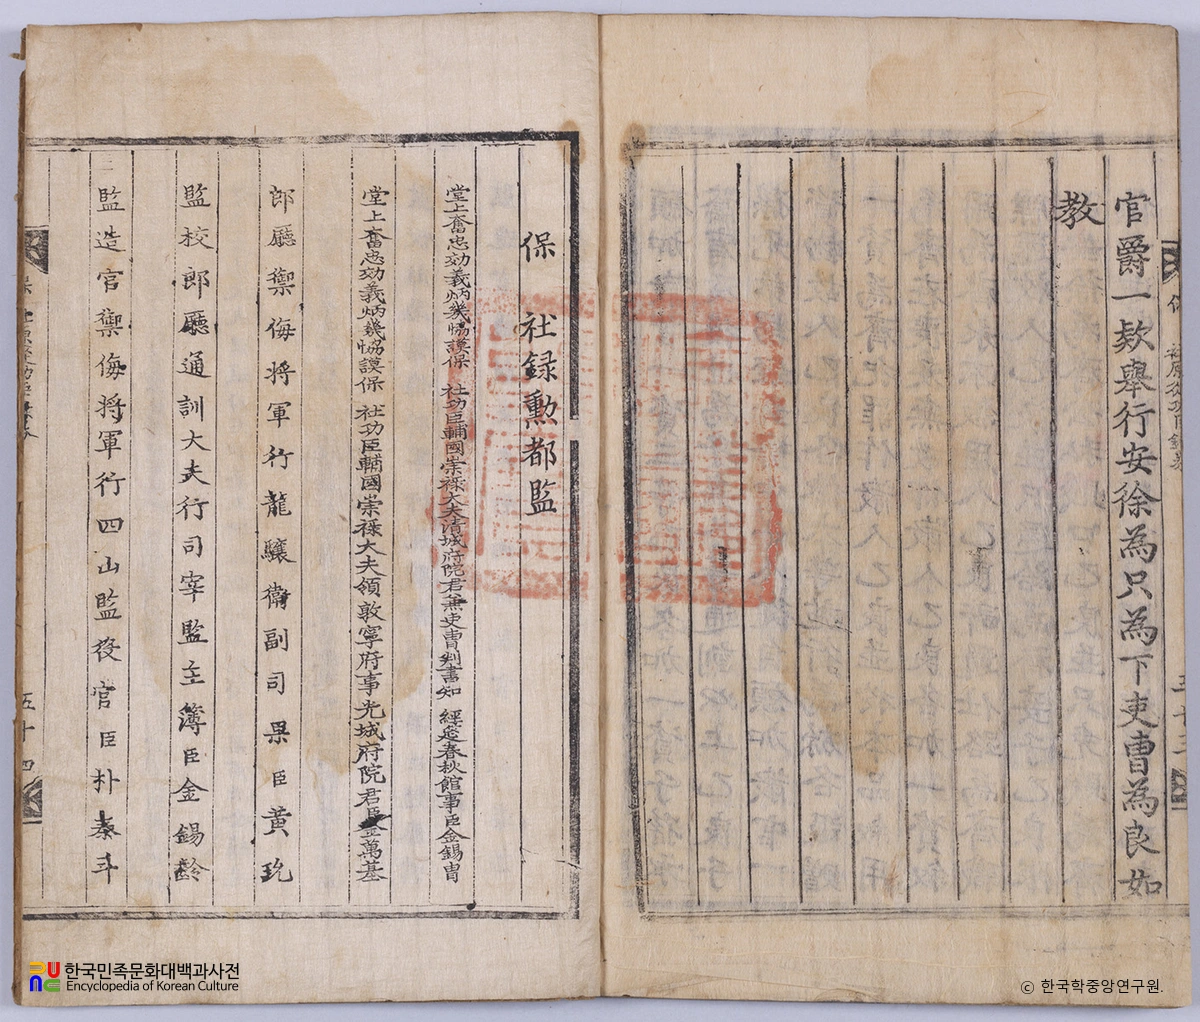 官爵一欵舉行安徐為只為下吏曹為良如
教
五十三
保 社錄勳都監
堂上奮忠効義炳幾協謨保 社功臣輔國崇祿大夫淸城府院君兼吏曹判書知 經筵春秋館事臣金錫冑
堂上奮忠効義炳幾協謨保 社功臣輔國崇祿大夫領敦寧府事光城府院君臣金萬基
郎廳禦侮將軍行龍驤衛副司果臣黃玧
監校郎廳通訓大夫行司宰監主簿臣金錫齡
監造官禦侮將軍行四山監役官臣朴泰斗
五十四
한국민족문화대백과사전
Encyclopedia of Korean Culture
ⓒ 한국학중앙연구원.